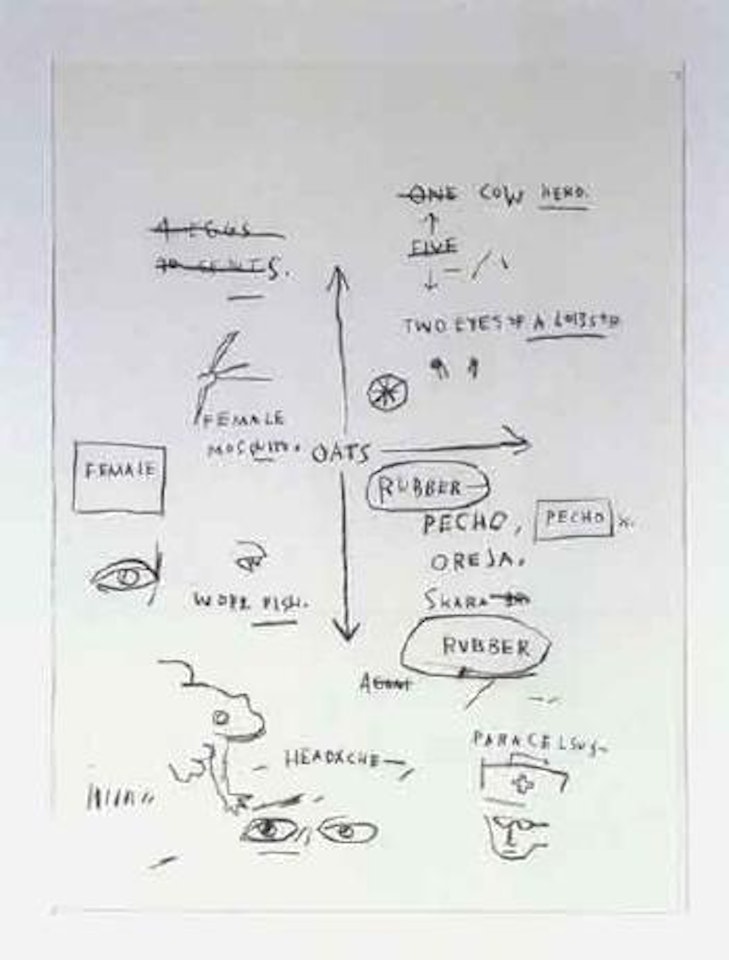 ONE COW HERD.
4 EGGS
FIVE
TWO EYES OF A LOBSTER
FEMALE
MOSQUITO.
OATS
FEMALE
RUBBER
PECHO, PECHO
OREJA.
WORK FISH.
RUBBER
AGENT
PARACELSUS
HEADACHE